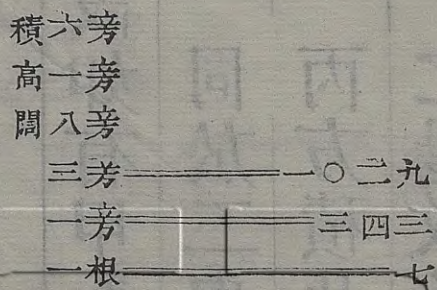 積六旁
高一旁
闊八旁
三旁＝一〇二九
一旁＝三四三
一根＝七